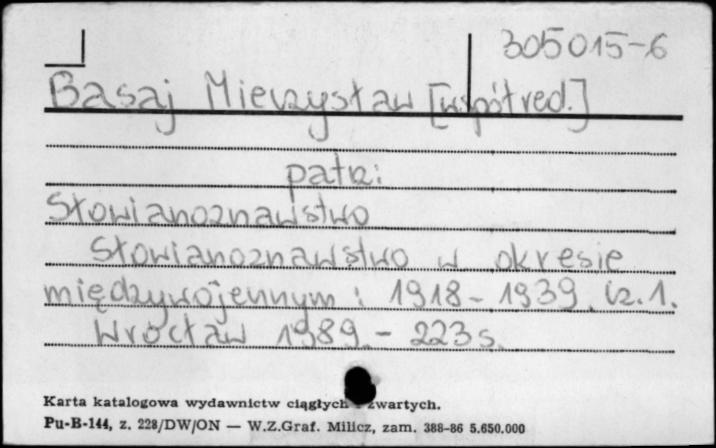 305015-6
Basaj Mieczysław [współred.]
patrz:
Słowianoznawstwo
Słowianoznawstwo w okresie
międzywojennym : 1918-1939. Cz. 1.
Wrocław 1989. - 223 s.
Karta katalogowa wydawnictw ciągłych zwartych.
Pu-B-144, z. 228/DW/ON — W.Z.Graf. Milicz, zam. 388-86 5.650.000